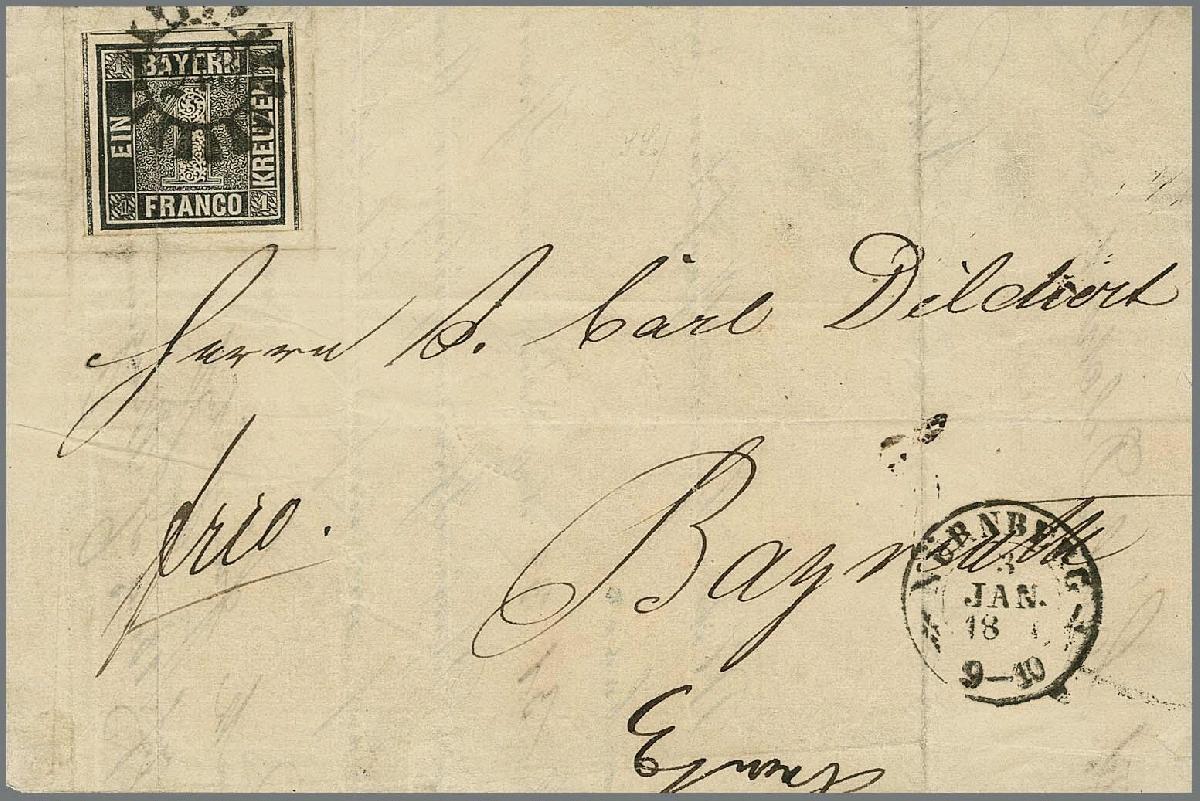 1 BAYERN 1
EIN
KREUZER
1 FRANCO 1
Herrn J. Carl Dilchert
frco.
Bayreuth
NÜRNBERG
3
JAN.
18
9-10